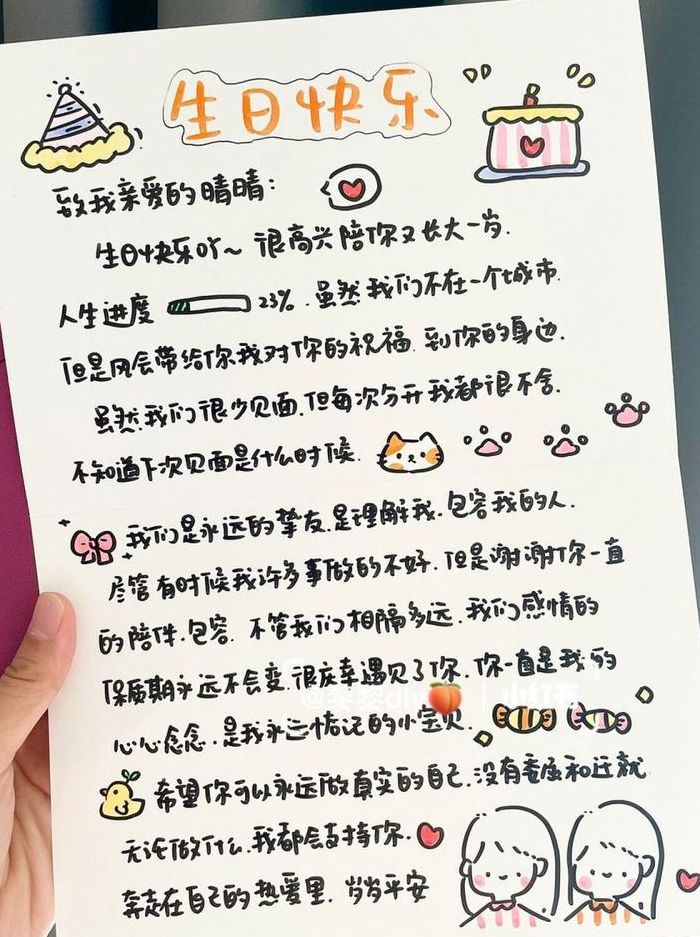 生日快乐
致我亲爱的晴晴:
生日快乐吖~ 很高兴陪你又长大一岁.
人生进度 23%. 虽然我们不在一个城市.
但是风会带给你我对你的祝福. 到你的身边.
虽然我们很少见面.但每次分开我都很不舍.
不知道下次见面是什么时候.
我们是永远的挚友.是理解我.包容我的人.
尽管有时候我许多事做的不好.但是谢谢你一直
的陪伴.包容. 不管我们相隔多远.我们感情的
保质期永远不会变.很庆幸遇见了你.你一直是我的
@黎黎diy 小红书
心心念念.是我永远惦记的小宝贝.
希望你可以永远做真实的自己.没有委屈和迁就
无论做什么.我都会支持你.
奔走在自己的热爱里. 岁岁平安